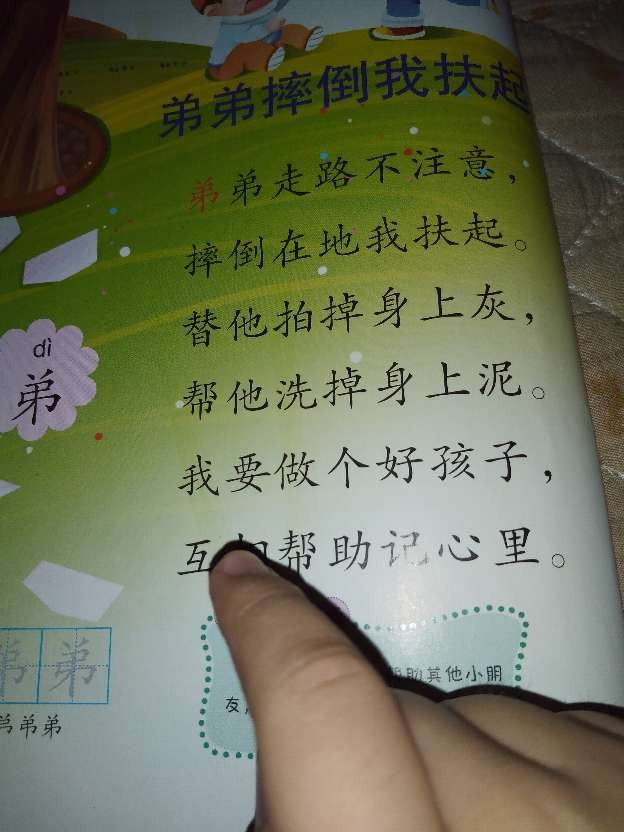 弟弟摔倒我扶起
弟弟走路不注意，
摔倒在地我扶起。
替他拍掉身上灰，
帮他洗掉身上泥。
dì
弟
我要做个好孩子，
互相帮助记心里。
弟弟
助其他小朋
友
弟弟弟